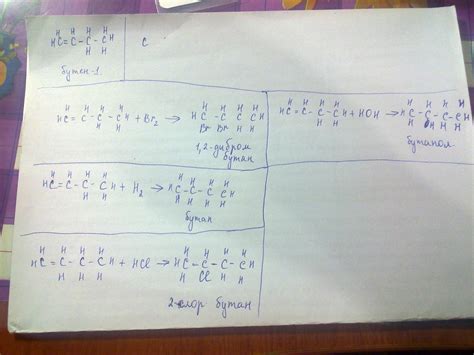 H H H H
HC=C-C-CH
H H
бутен-1
С
H H H H
HC=C-C-CH + Br₂ → HC-C-C-CH
H H
Br Br H H
1,2-дибром
бутан
HC=C-C-CH + HOH → HC-C-C-CH
H H
H OH H H
бутанол
H H H H
HC=C-C-CH + H₂ → HC-C-C-CH
H H
H H H H
бутан
H H H H
HC=C-C-CH + HCl → HC-C-C-CH
H H H
H Cl H H
2-хлор бутан